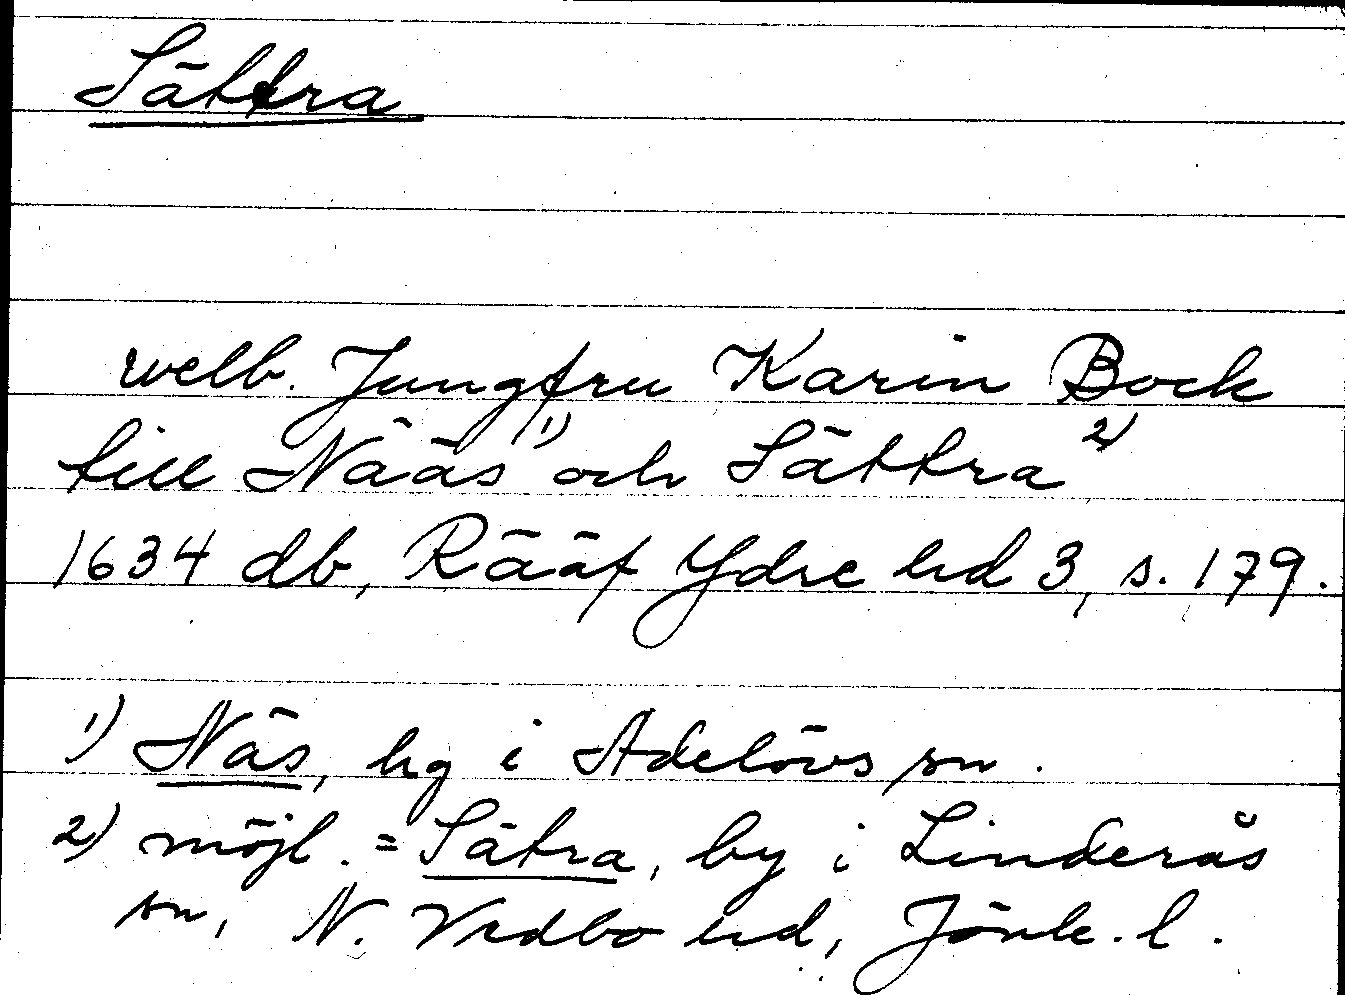 Sättra
welb. Jungfru Karin Bock
till Nääs 1) och Sättra 2)
1634 db, Rääf Ydre hd 3, s. 179.
1) Näs, hg i Adelövs sn.
2) möjl. = Sätra, by i Linderås
sn, N. Vedbo hd, Jönk. l.